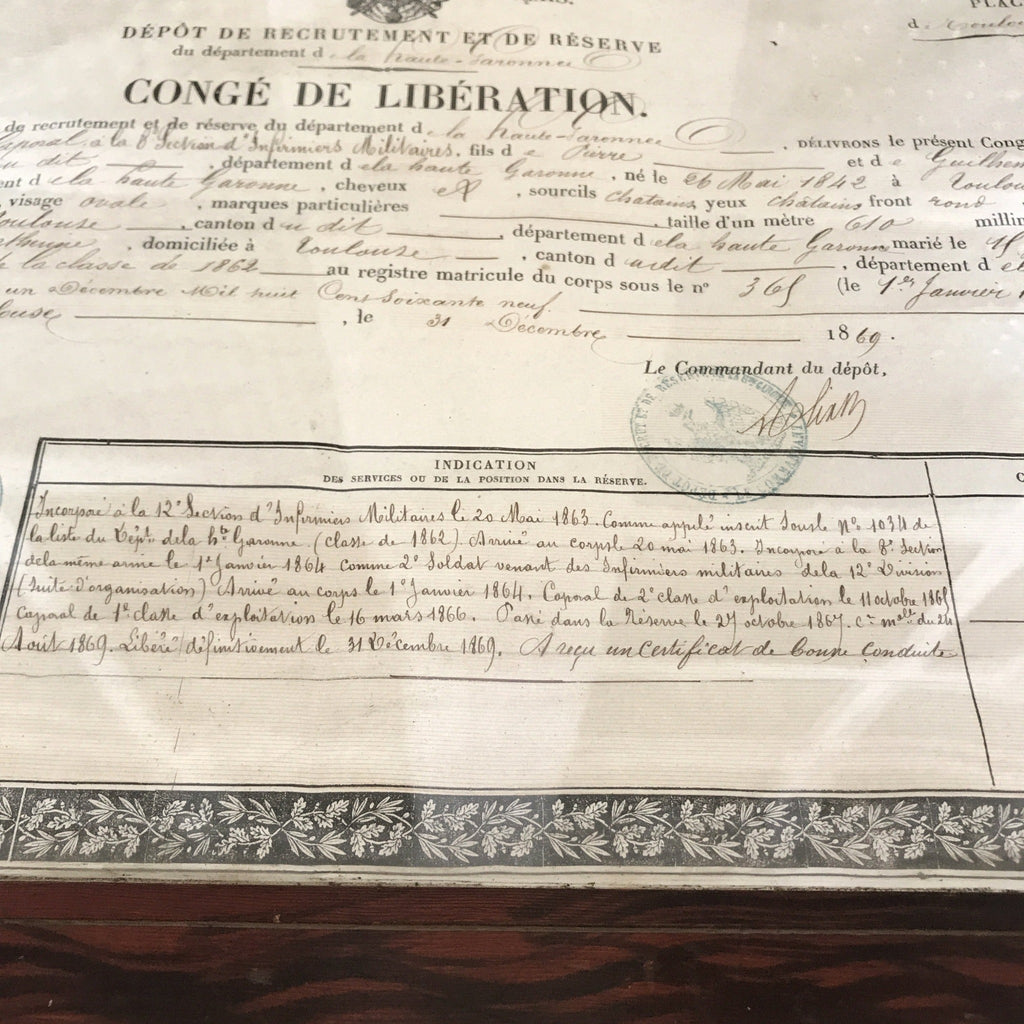 PLAC
DÉPÔT DE RECRUTEMENT ET DE RÉSERVE
du département d e la haute-Garonne
CONGÉ DE LIBÉRATION.
de recrutement et de réserve du département d e la haute-Garonne, DÉLIVRONS le présent Cong
Caporal à la 8e Section d'Infirmiers Militaires, fils d e Pierre et d e Guilhem
u dit, département d e la haute Garonne, né le 26 Mai 1842 à Toulou
ent d e la haute Garonne, cheveux et, sourcils chatains yeux chatains front rond
, visage ovale, marques particulières
Toulouse, canton d u dit taille d'un mètre 610 millim
, domiciliée à Toulouse, département d e la haute Garonne marié le
de la classe de 1862, canton d udit, département d e
au registre matricule du corps sous le n° 365 (le 1er Janvier
un Décembre Mil huit Cent Soixante neuf
ouse, le 31 Décembre 1869.
Le Commandant du dépôt,
INDICATION
DES SERVICES OU DE LA POSITION DANS LA RÉSERVE.
Incorporé à la 12e Section d'Infirmiers Militaires le 20 Mai 1863. Comme appelé inscrit Sous le No 1034 de
la liste du Dépt. de la hte Garonne. (classe de 1862) Arrivé au corps le 20 mai 1863. Incorporé à la 8e Section
de la même arme le 1er Janvier 1864 Comme 2e Soldat venant des Infirmiers militaires de la 12e Division
(Suite d'organisation) Arrivé au corps le 1er Janvier 1864. Caporal de 2e classe d'exploitation le 11 octobre 186
Caporal de 1re classe d'exploitation le 16 mars 1866. Passé dans la Réserve le 27 octobre 1867. Con melle du 24
Août 1869. Libéré définitivement le 31 Décembre 1869. A reçu un certificat de bonne conduite